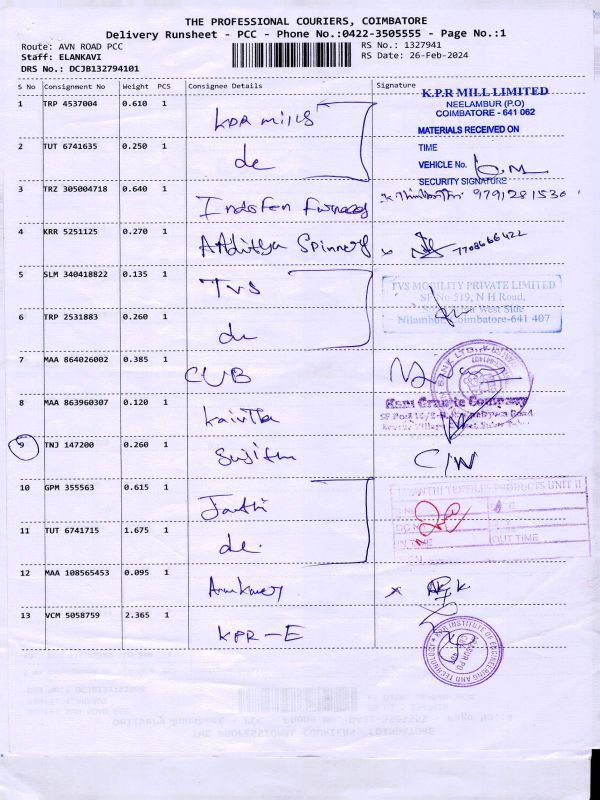 THE PROFESSIONAL COURIERS, COIMBATORE
Delivery Runsheet - PCC - Phone No.:0422-3505555 - Page No.:1
Route: AVN ROAD PCC
RS No.: 1327941
Staff: ELANKAVI
RS Date: 26-Feb-2024
DRS No.: DCJB132794101
S No Consignment No Weight PCS Consignee Details Signature
K.P.R MILL LIMITED
NEELAMBUR (P.O)
COIMBATORE - 641 062
1 TRP 4537004 0.610 1 KPR mills
MATERIALS RECEIVED ON
TIME
2 TUT 6741635 0.250 1 do
VEHICLE No.
SECURITY SIGNATURE
3 TRZ 305004718 0.640 1 Furnaces 9791281530
4 KRR 5251125 0.270 1 Aaditya Spinners x 7708666422
5 SLM 340418822 0.135 1 TVS
TVS MOBILITY PRIVATE LIMITED
SF No 519, N H Road,
West Side
Nilambur, Coimbatore-641 407
6 TRP 2531883 0.260 1 do
7 MAA 864026002 0.385 1 CUB
8 MAA 863960307 0.120 1
Granite Company
9 TNJ 147200 0.260 1 C/W
10 GPM 355563 0.615 1
TEXTILES PRODUCTS UNIT II
IN TIME OUT TIME
11 TUT 6741715 1.675 1 do
12 MAA 108565453 0.095 1 x
13 VCM 5058759 2.365 1 KPR-E
KPR INSTITUTE OF ENGINEERING AND TECHNOLOGY